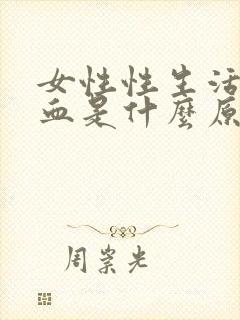 女性性生活
血是什麼原
周崇光